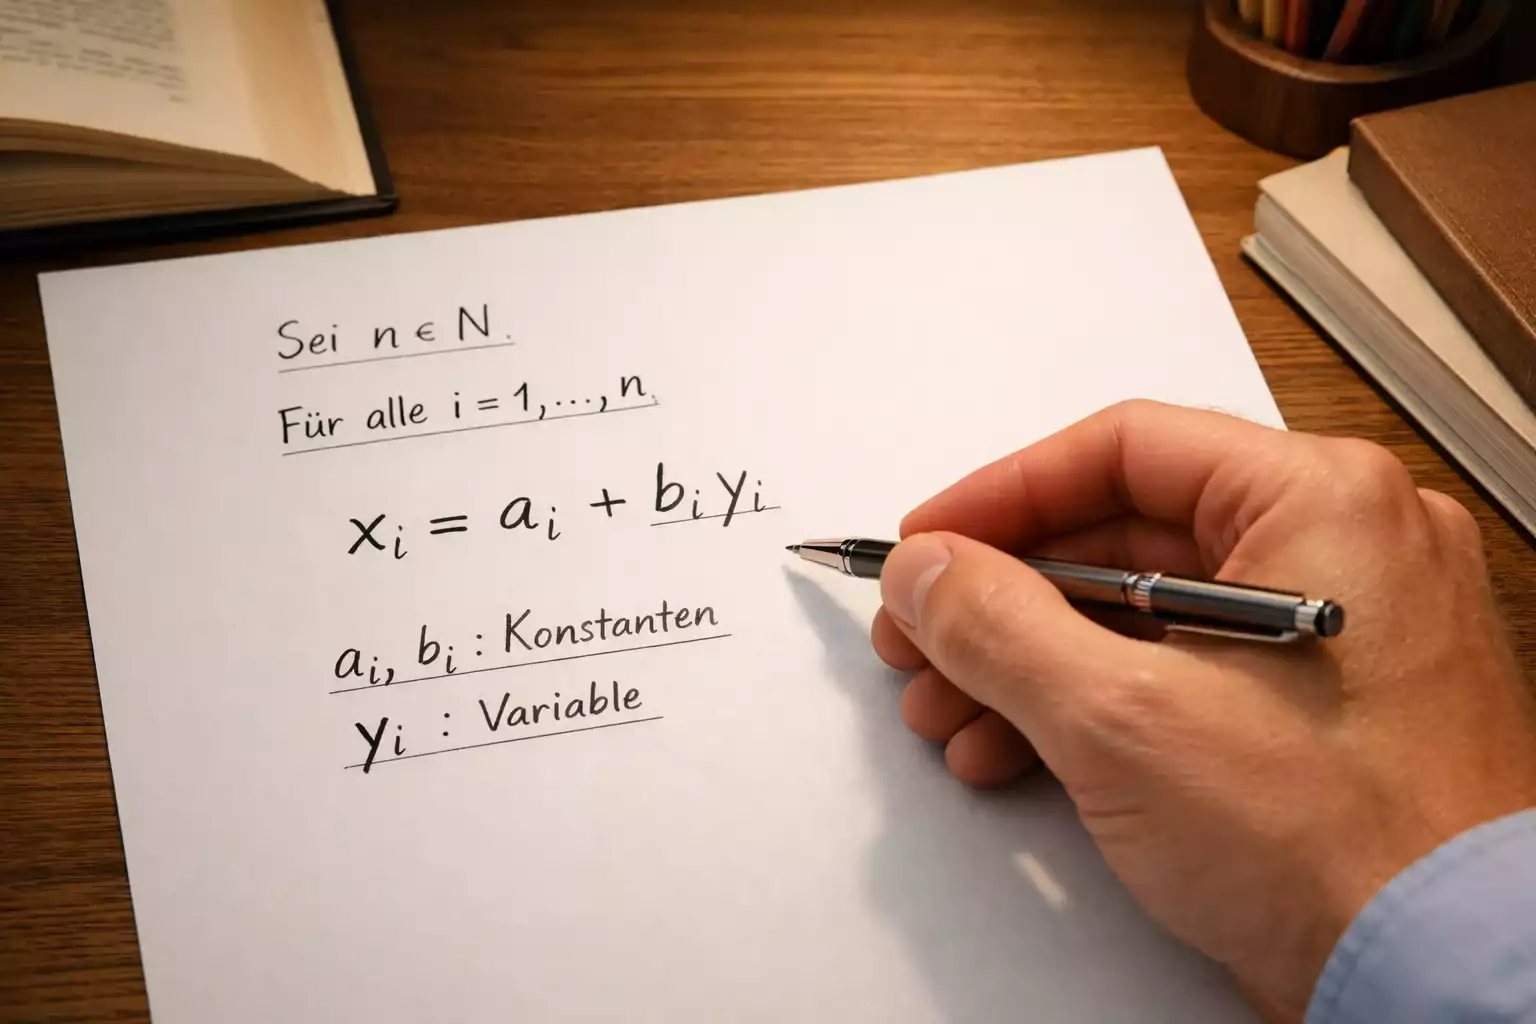 Sei n ∈ N.
Für alle i = 1,...,n.
xᵢ = aᵢ + bᵢ yᵢ
aᵢ, bᵢ : Konstanten
yᵢ : Variable